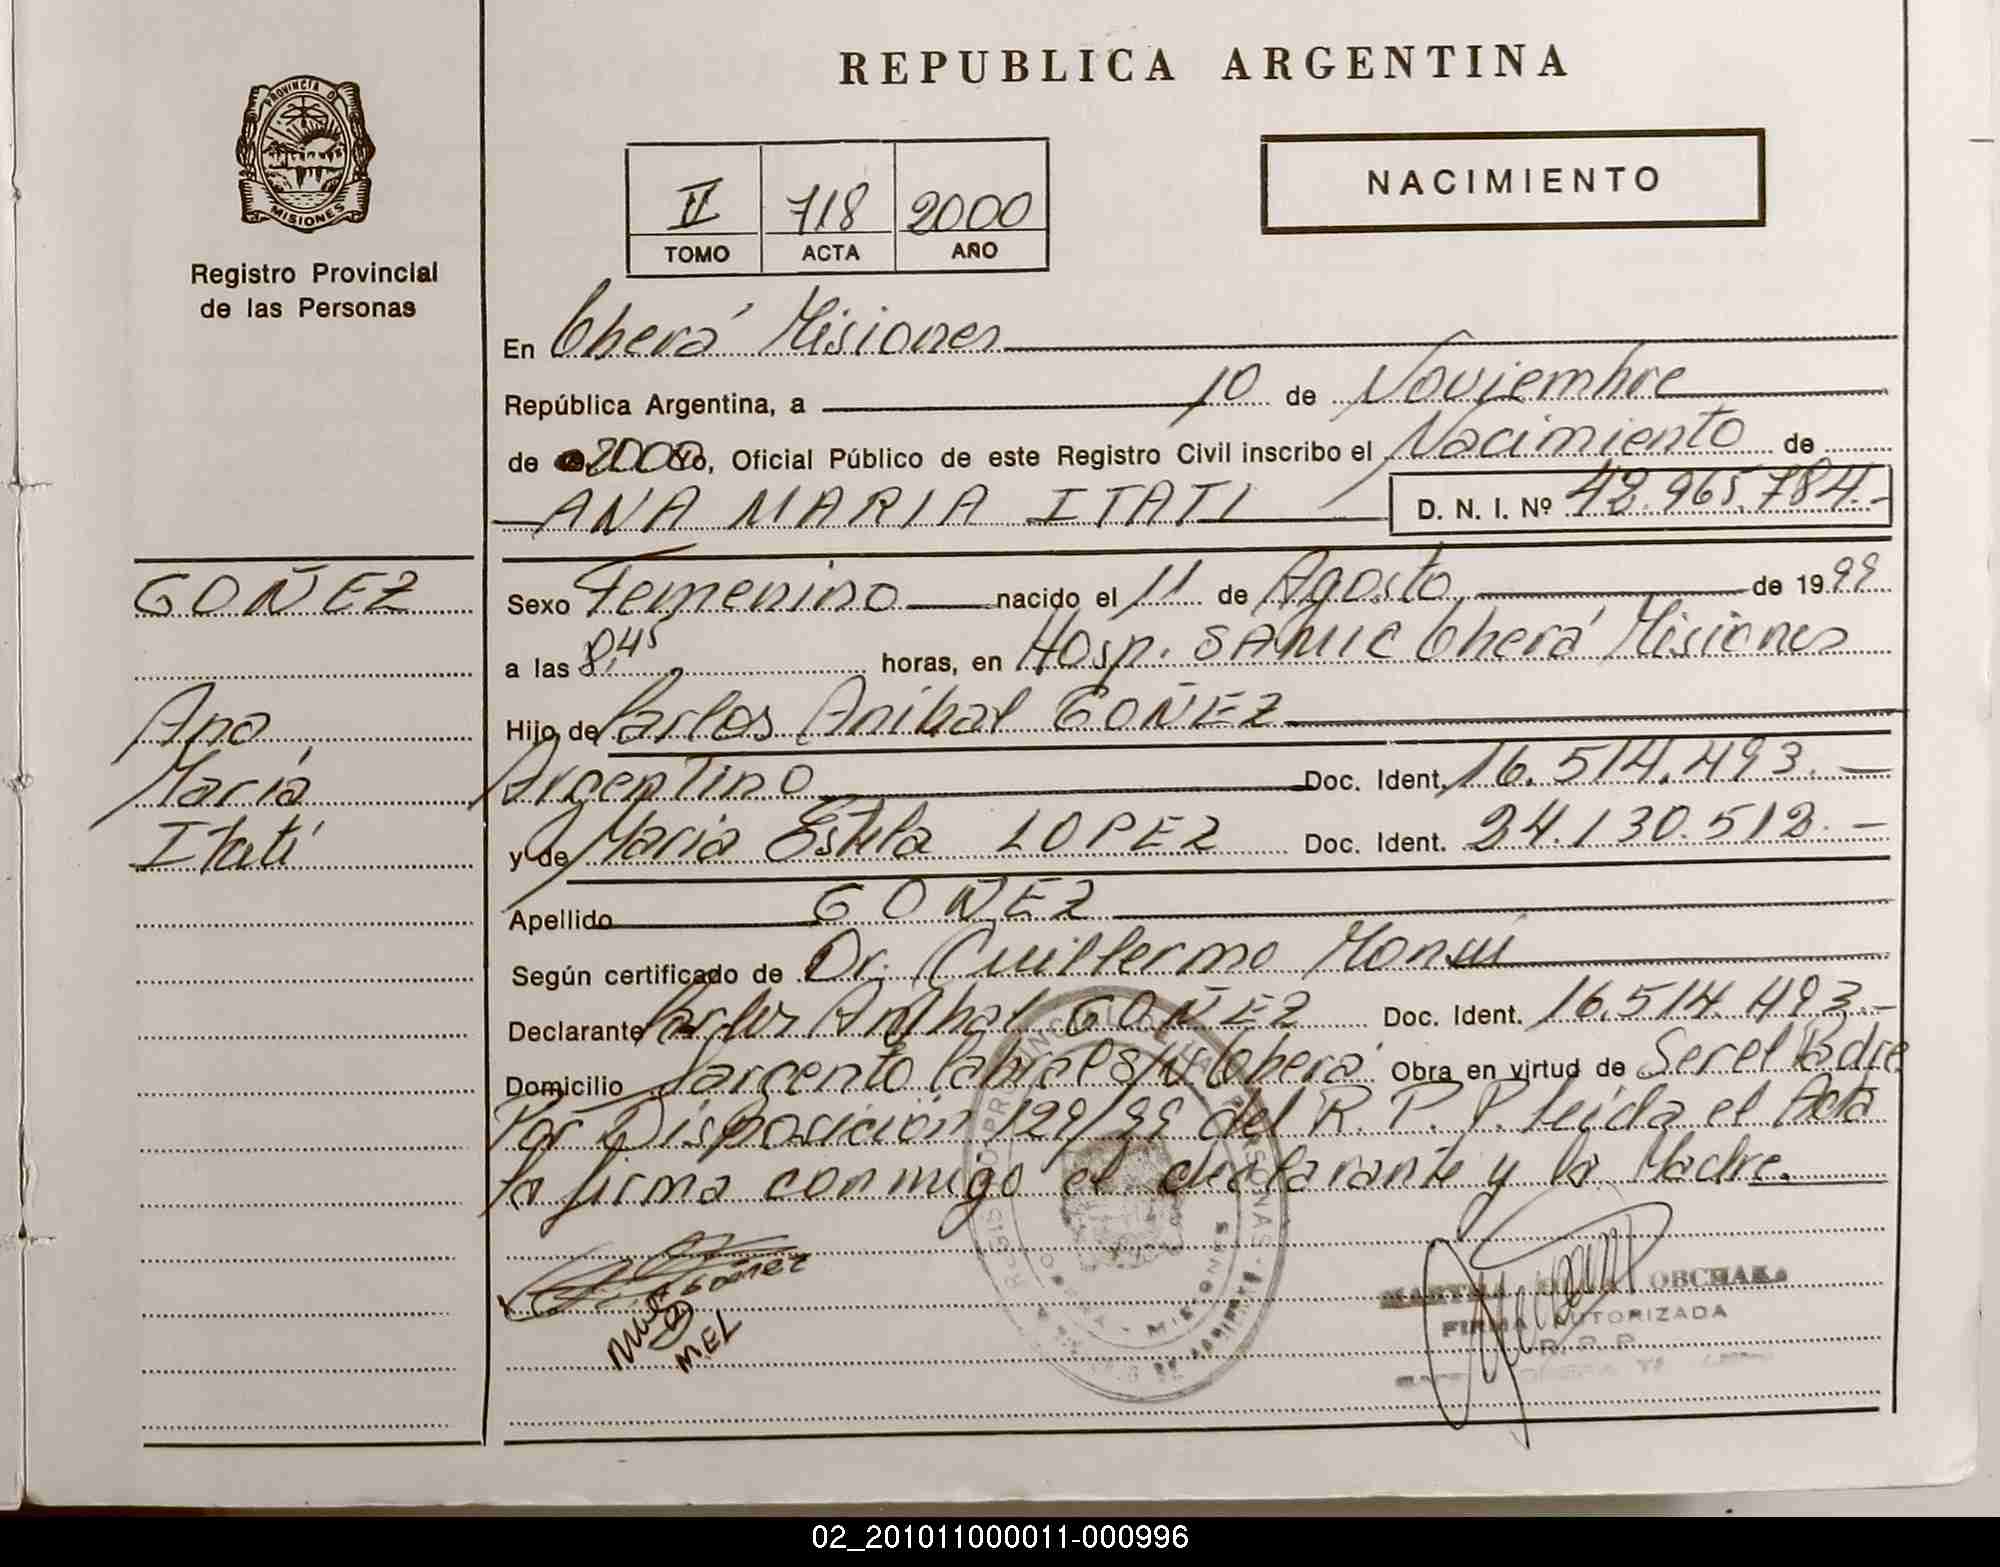 REPUBLICA ARGENTINA
PROVINCIA DE
MISIONES
Registro Provincial
de las Personas
II 718 2000
TOMO ACTA AÑO
NACIMIENTO
En Oberá Misiones
República Argentina, a 10 de Noviembre
de 2000 Yo, Oficial Público de este Registro Civil inscribo el Nacimiento de
ANA MARIA ITATI D. N. I. Nº 42.965.784.-
GOÑEZ
Ana
María
Itatí
Sexo Femenino nacido el 11 de Agosto de 1999
a las 8,45 horas, en Hosp. SAMIC Oberá Misiones
Hijo de Carlos Aníbal GOÑEZ
Argentino Doc. Ident. 16.514.493.-
y de María Estela LOPEZ Doc. Ident. 24.130.512.-
Apellido GOÑEZ
Según certificado de Dr. Guillermo
Declarante Carlos Aníbal GOÑEZ Doc. Ident. 16.514.493.-
Domicilio Sargento Cabral S/Nº Oberá Obra en virtud de Ser el Padre
Por Disposición 129/99 del R. P. P. leída el Acta
la firma conmigo el declarante y la Madre.
MEL
MARTHA OBCHAK
FIRMA AUTORIZADA
R. P. P.
02_201011000011-000996